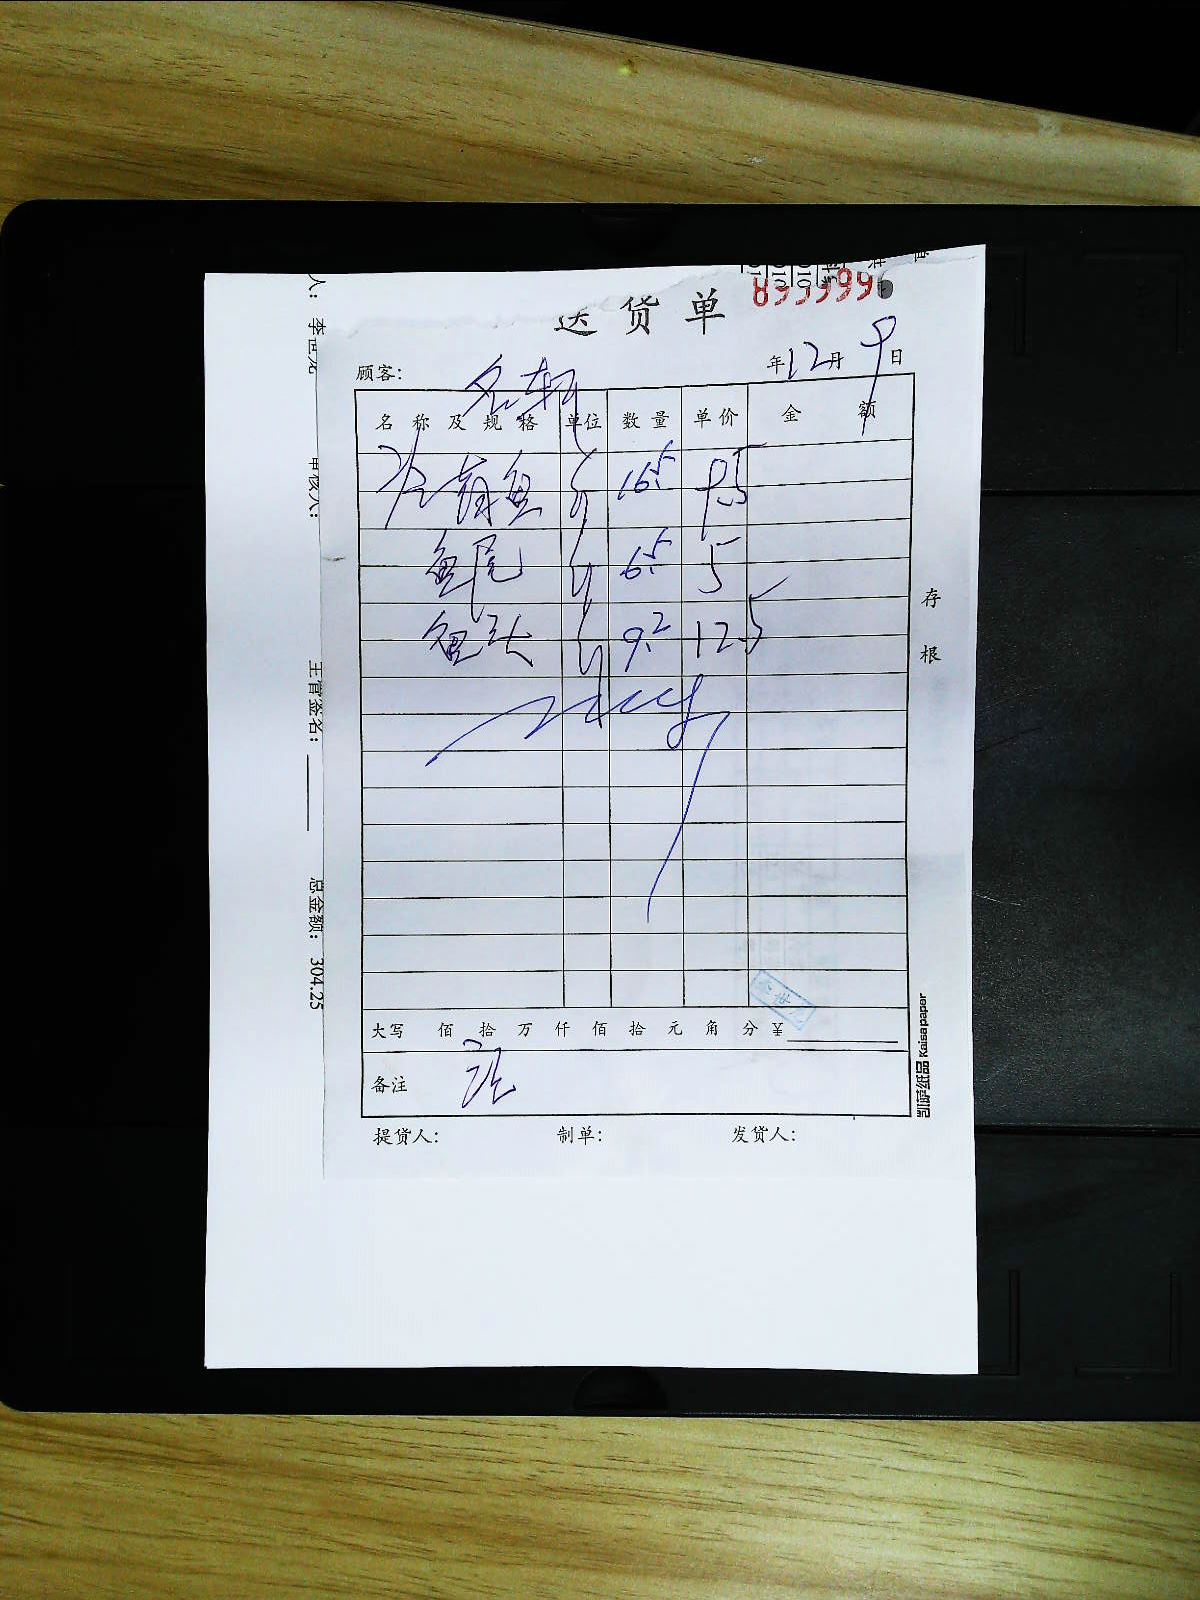 送货单
顾客: 名轩 年12月9日
名称及规格 单位 数量 单价 金额
鱼 斤 16.5 9.5
鱼尾 斤 6.5 5
鱼头 斤 9.2 12.5
存根
大写 佰 拾 万 仟 佰 拾 元 角 分 ¥
备注
提货人: 制单: 发货人:
凯萨纸品 Kaisa paper
人: 李世龙 审核人: 主管签名: 总金额: 304.25